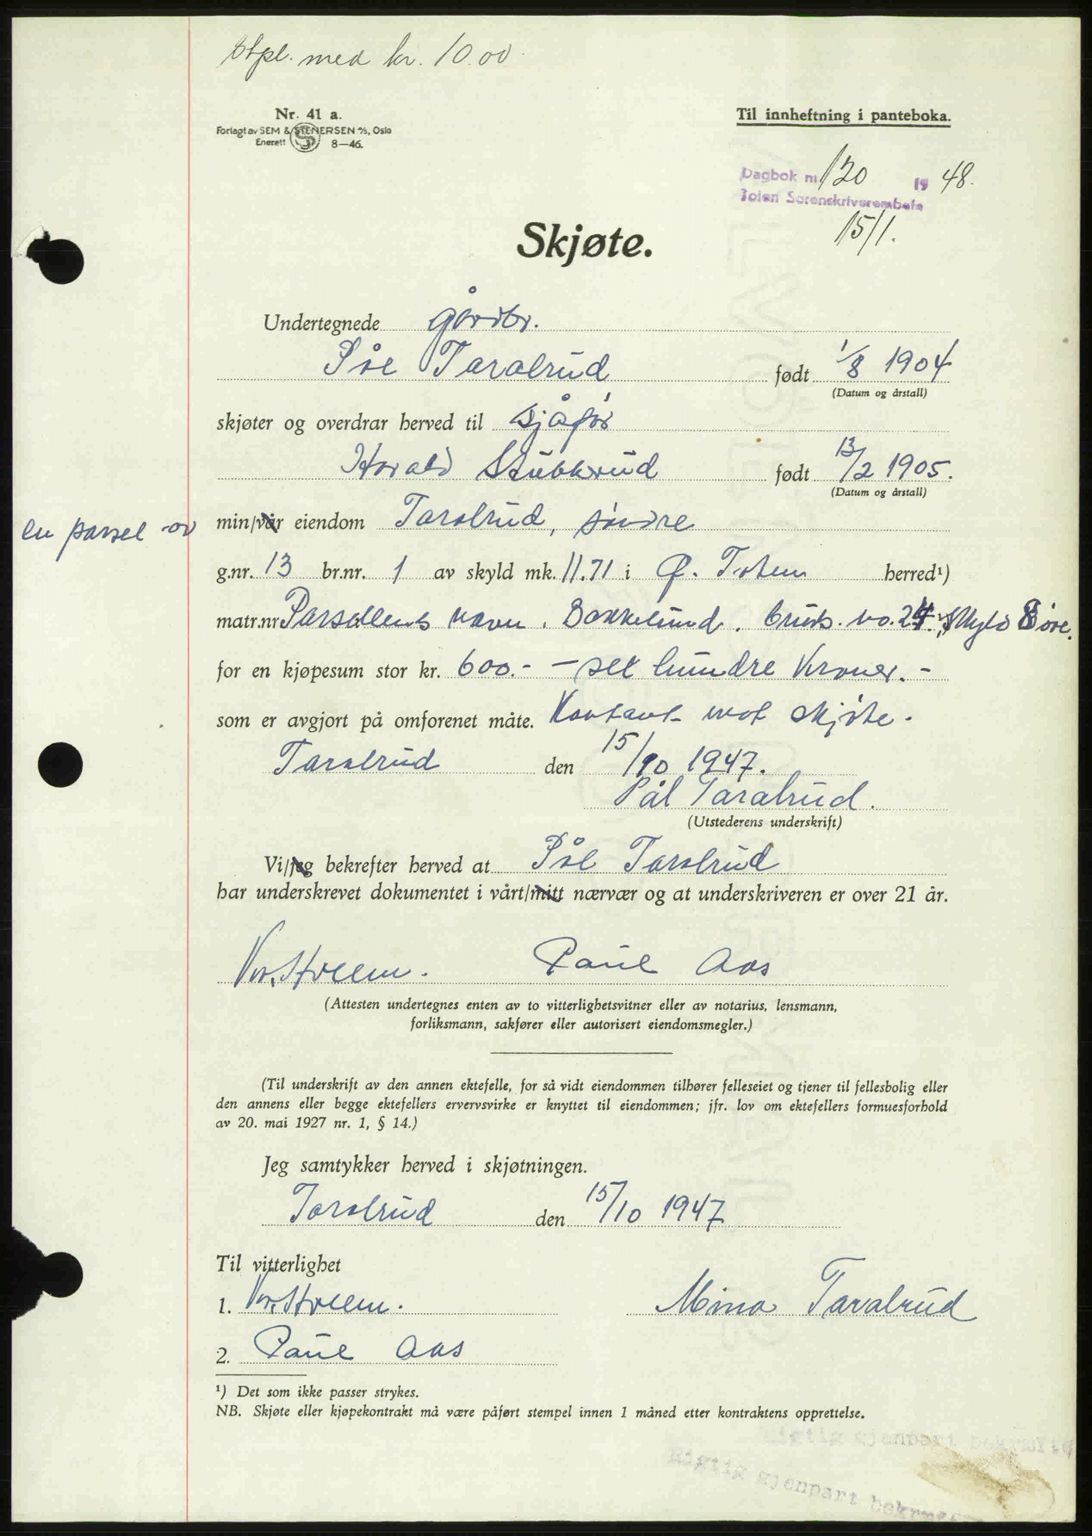 Stpl. med kr. 10.00
Nr. 41 a.
Forlagt av SEM & STENERSEN A/S, Oslo
Enerett 8—46.
Til innheftning i panteboka.
Dagbok nr. 120 19 48.
Toten Sorenskriverembete
15/1.
Skjøte.
Undertegnede gårdbr.
Pål Taralrud født 1/8 1904
(Datum og årstall)
skjøter og overdrar herved til sjåfør
Harald Stubberud født 13/2 1905.
(Datum og årstall)
en parsel av min/vår eiendom Taralrud, søndre
g.nr. 13 br.nr. 1 av skyld mk. 11.71 i Ø. Toten herred¹)
matr.nr. Parsellens navn. Bakkelund. bruks. no. 24, skyld 8 øre.
for en kjøpesum stor kr. 600.- — seks hundre kroner. -
som er avgjort på omforenet måte. Kontant mot skjøte.
Taralrud den 15/10 1947.
Pål Taralrud.
(Utstederens underskrift)
Vi/jeg bekrefter herved at Pål Taralrud
har underskrevet dokumentet i vårt/mitt nærvær og at underskriveren er over 21 år.
Paul Aas
(Attesten undertegnes enten av to vitterlighetsvitner eller av notarius, lensmann,
forliksmann, sakfører eller autorisert eiendomsmegler.)
(Til underskrift av den annen ektefelle, for så vidt eiendommen tilhører felleseiet og tjener til fellesbolig eller
den annens eller begge ektefellers ervervsvirke er knyttet til eiendommen; jfr. lov om ektefellers formuesforhold
av 20. mai 1927 nr. 1, § 14.)
Jeg samtykker herved i skjøtningen.
Taralrud den 15/10 1947
Til vitterlighet
1. Mina Taralrud
2. Paul Aas
¹) Det som ikke passer strykes.
NB. Skjøte eller kjøpekontrakt må være påført stempel innen 1 måned etter kontraktens opprettelse.
Rigtig gjenpart bekræftes
Rigtig gjenpart bekræftes